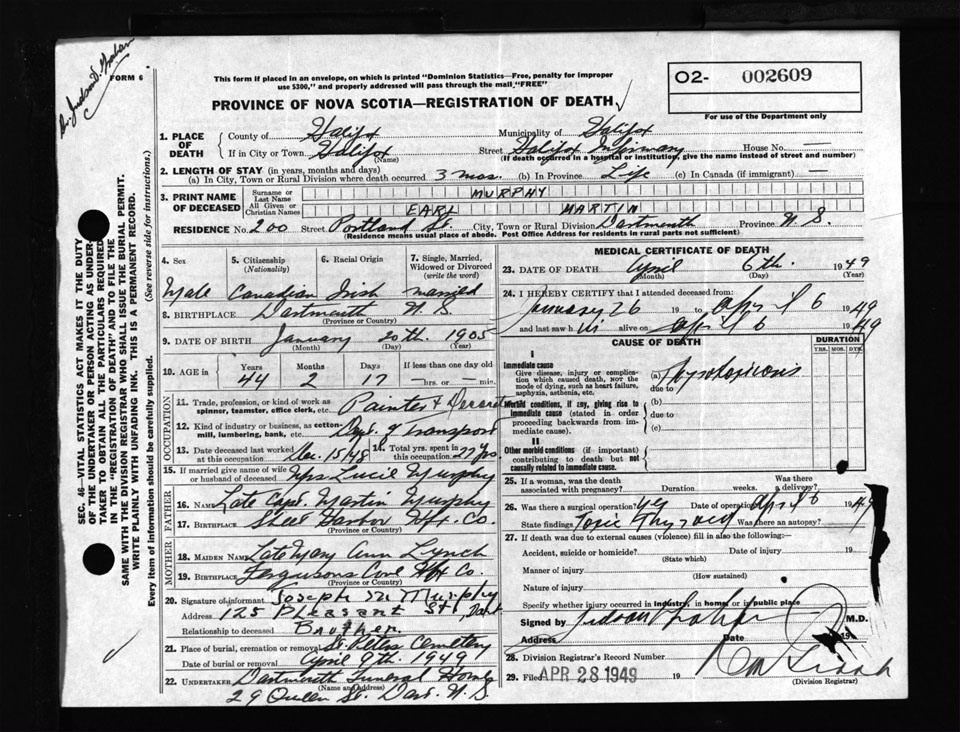 FORM 6
This form if placed in an envelope, on which is printed "Dominion Statistics—Free, penalty for improper
use $300," and properly addressed will pass through the mail, "FREE"
O2- 002609
For use of the Department only
PROVINCE OF NOVA SCOTIA—REGISTRATION OF DEATH
SEC. 46—VITAL STATISTICS ACT MAKES IT THE DUTY
OF THE UNDERTAKER OR PERSON ACTING AS UNDER-
TAKER TO OBTAIN ALL THE PARTICULARS REQUIRED
IN THE "REGISTRATION OF DEATH" AND TO FILE THE
SAME WITH THE DIVISION REGISTRAR WHO SHALL ISSUE THE BURIAL PERMIT.
WRITE PLAINLY WITH UNFADING INK. THIS IS A PERMANENT RECORD.
Every item of information should be carefully supplied. (See reverse side for instructions.)
1. PLACE OF DEATH
County of Halifax Municipality of Halifax
If in City or Town Halifax (Name) Street Halifax Infirmary House No. —
(If death occurred in a hospital or institution, give the name instead of street and number)
2. LENGTH OF STAY (in years, months and days)
(a) In City, Town or Rural Division where death occurred 3 mos. (b) In Province Life (c) In Canada (if immigrant) —
3. PRINT NAME OF DECEASED
Surname or Last Name MURPHY
All Given or Christian Names EARL MARTIN
RESIDENCE No. 200 Street Portland St. City, Town or Rural Division Dartmouth Province N.S.
(Residence means usual place of abode. Post Office Address for residents in rural parts not sufficient)
4. Sex 5. Citizenship (Nationality) 6. Racial Origin 7. Single, Married, Widowed or Divorced (write the word)
Male Canadian Irish married
8. BIRTHPLACE Dartmouth N.S.
(Province or Country)
9. DATE OF BIRTH January 20th. 1905
(Month) (Day) (Year)
10. AGE in Years Months Days If less than one day old
44 2 17 —hrs. or —min.
OCCUPATION
11. Trade, profession, or kind of work as
spinner, teamster, office clerk, etc. Painter &
12. Kind of industry or business, as cotton-
mill, lumbering, bank, etc. Dept. of Transport
13. Date deceased last worked at this occupation Dec. 15/48 14. Total yrs. spent in this occupation 22 yrs
15. If married give name of wife or husband of deceased Mrs Lucil Murphy
FATHER
16. Name Late Capt. Martin Murphy
17. BIRTHPLACE Sheet Harbor Hfx. Co.
(Province or Country)
MOTHER
18. MAIDEN NAME Late Mary Ann Lynch
19. BIRTHPLACE Fergusons Cove Hfx Co.
(Province or Country)
20. Signature of informant Joseph M Murphy
Address 125 Pleasant St., Dart
Relationship to deceased Brother.
21. Place of burial, cremation or removal St. Peters Cemetery
Date of burial or removal April 9th. 1949
22. UNDERTAKER Dartmouth Funeral Home
(Name and Address)
29 Queen St. Dart. N.S
MEDICAL CERTIFICATE OF DEATH
23. DATE OF DEATH April 6th. 1949
(Month) (Day) (Year)
24. I HEREBY CERTIFY that I attended deceased from:
January 26 to april 6 1949
and last saw h im alive on april 6 1949
CAUSE OF DEATH
DURATION
YRS. MOS. DYS.
I
Immediate cause
Give disease, injury or complica-
tion which caused death, NOT the
mode of dying, such as heart failure,
asphyxia, asthenia, etc.
(a)
due to
Morbid conditions, if any, giving rise to
immediate cause (stated in order
proceeding backwards from im-
mediate cause).
(b)
due to
(c)
II
Other morbid conditions (if important)
contributing to death but not
causally related to immediate cause.
25. If a woman, was the death associated with pregnancy? Duration weeks. Was there a delivery?
26. Was there a surgical operation? yes Date of operation April 6 1949
State findings Toxic Thyroid Was there an autopsy?
27. If death was due to external causes (violence) fill in also the following:
Accident, suicide or homicide? Date of injury 19
(State which)
Manner of injury
(How sustained)
Nature of injury
Specify whether injury occurred in industry, in home, or in public place
Signed by M.D.
Address Date 19
28. Division Registrar's Record Number
29. Filed APR 28 1949 19
(Division Registrar)